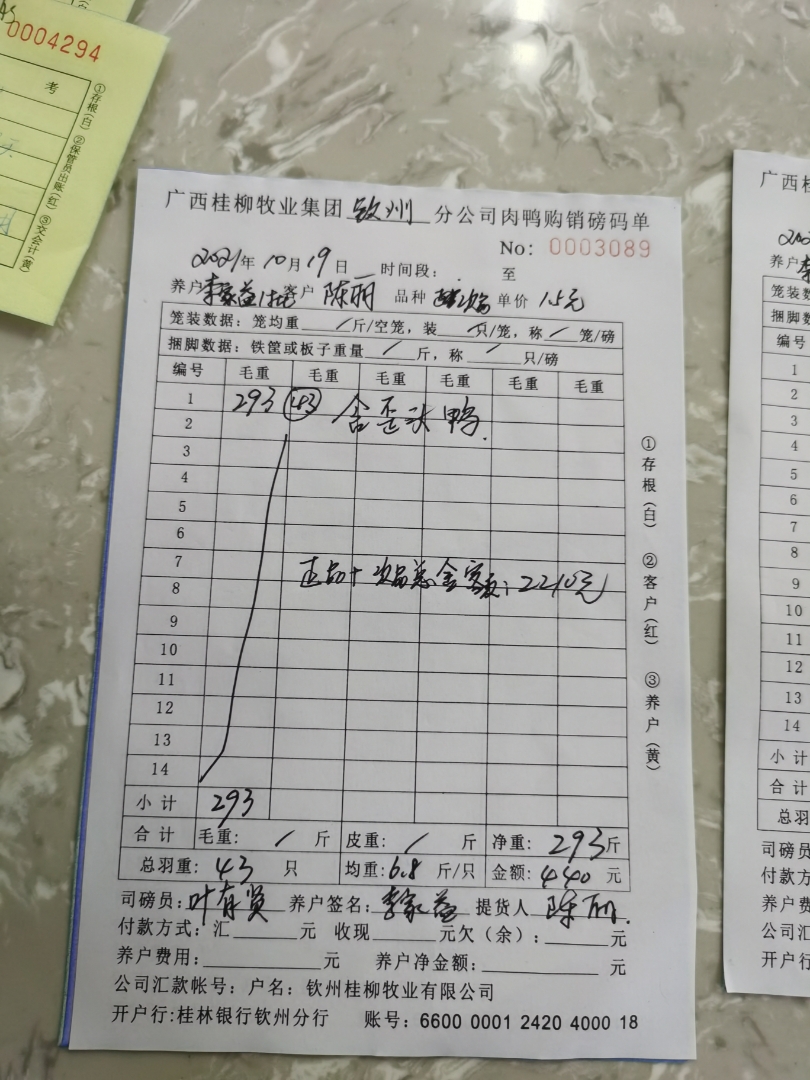 0004294
考
①存根(白) ②保管员出账(红) ③交会计(黄)
广西桂柳牧业集团 钦州 分公司肉鸭购销磅码单
No: 0003089
2021年 10月 19日 时间段: 至
养户 李家益 客户 陈丽 品种 单价 1.5元
笼装数据: 笼均重 / 斤/空笼, 装 / 只/笼, 称 / 笼/磅
捆脚数据: 铁筐或板子重量 / 斤, 称 / 只/磅
编号 毛重 毛重 毛重 毛重 毛重 毛重
1 293 43 含歪头鸭.
2
3
4
5
6
7 正品+次品总金额: 2210元
8
9
10
11
12
13
14
小计 293
合计 毛重: / 斤 皮重: / 斤 净重: 293斤
总羽重: 43 只 均重: 6.8 斤/只 金额: 440 元
司磅员: 叶有贤 养户签名: 李家益 提货人 陈丽.
付款方式: 汇 元 收现 元欠(余): 元
养户费用: 元 养户净金额: 元
公司汇款帐号: 户名: 钦州桂柳牧业有限公司
开户行:桂林银行钦州分行 账号: 6600 0001 2420 4000 18
①存根(白) ②客户(红) ③养户(黄)
广西桂
养户
笼装数
捆脚数
编号
1
2
3
4
5
6
7
8
9
10
11
12
13
14
小计
合计
总羽
司磅员
付款方
养户费
公司汇
开户行